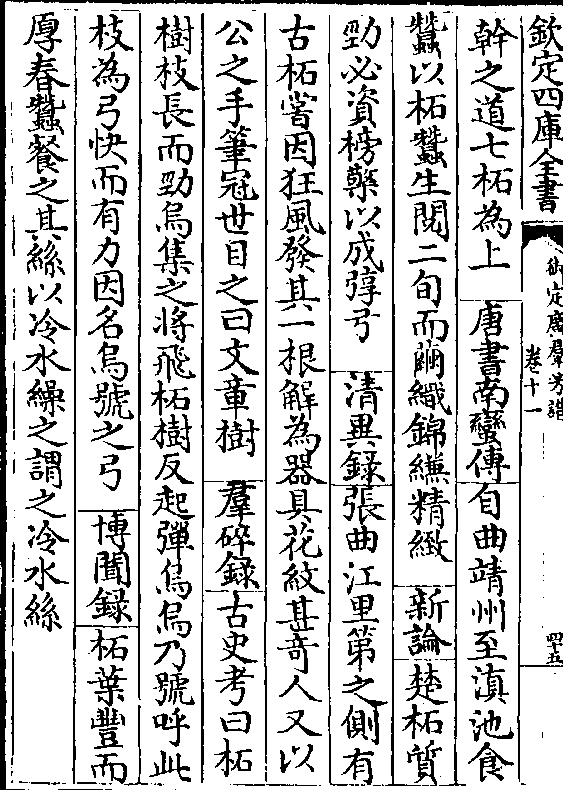 欽定四庫全書
御定廣羣芳譜
卷十一
四十五
幹之道七柘為上　唐書南蠻傳自曲靖州至滇池食
蠶以柘蠶生閱二旬而繭織錦縑精緻　新論楚柘質
勁必資榜檠以成弴弓　清異録張曲江里第之側有
古柘嘗因狂風發其一根解為器具花紋甚奇人又以
公之手筆冠世目之曰文章樹　羣碎録古史考曰柘
樹枝長而勁烏集之將飛柘樹反起彈烏烏乃號呼此
枝為弓快而有力因名烏號之弓　博聞録柘葉豐而
厚春蠶餐之其絲以冷水繰之謂之冷水絲